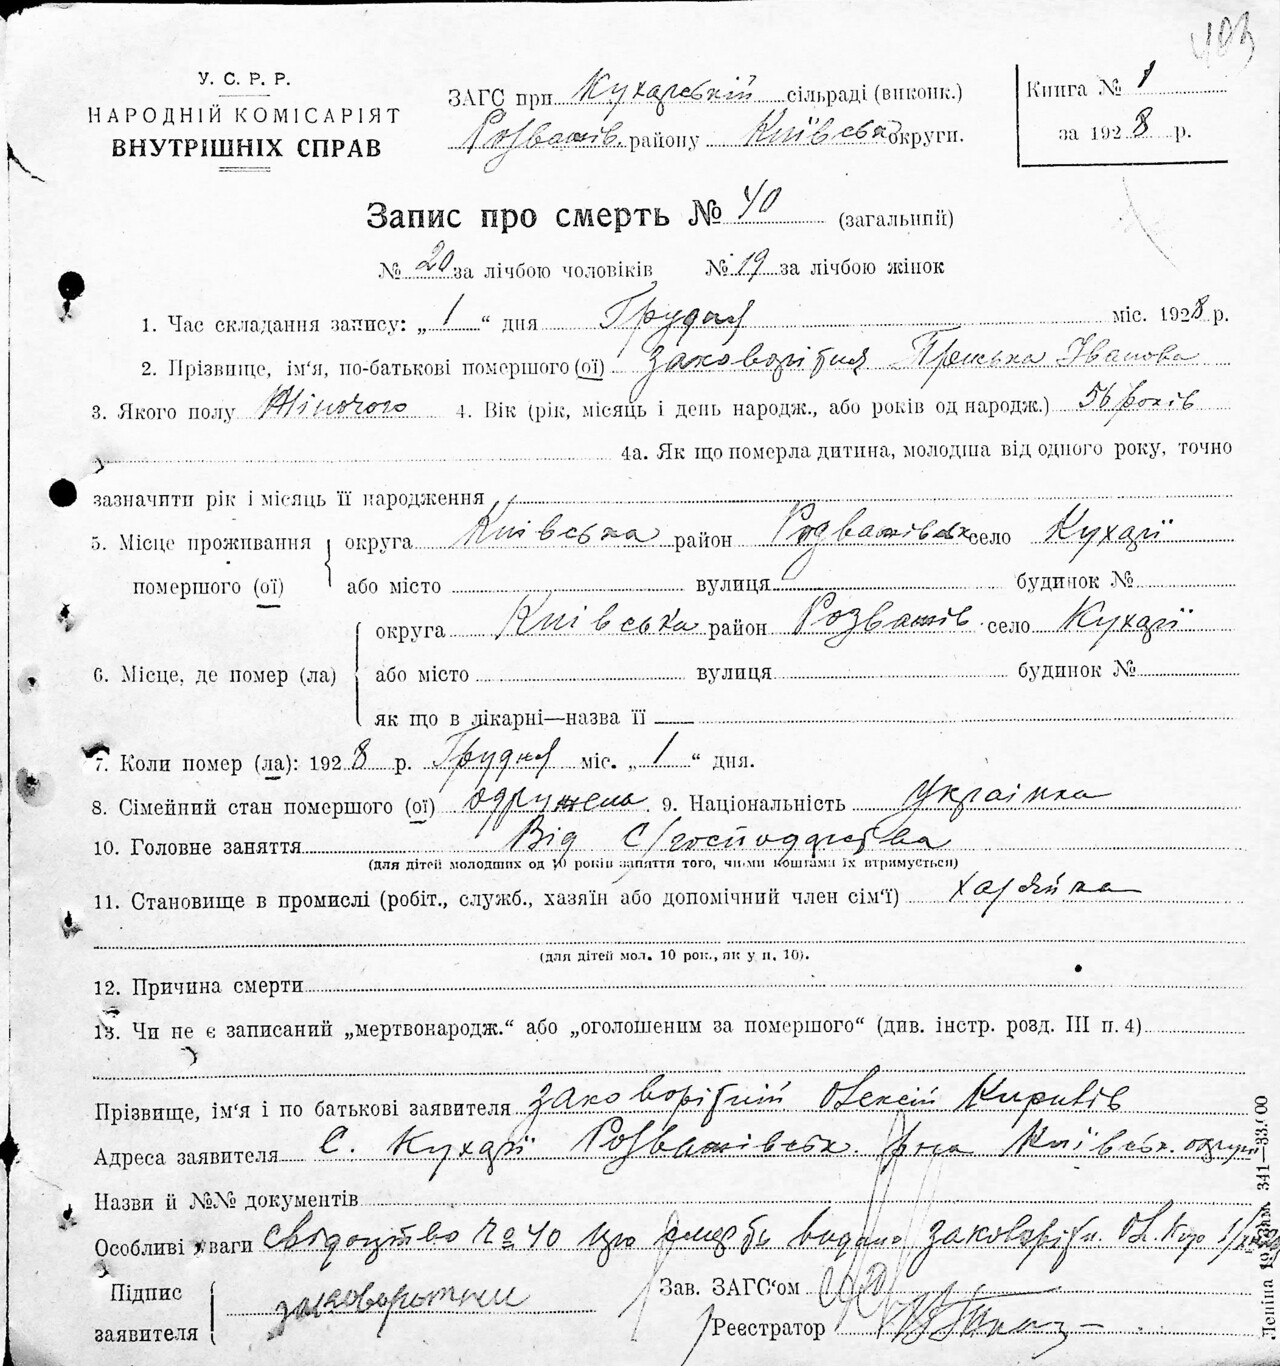 403
У. С. Р. Р.
НАРОДНІЙ КОМІСАРІЯТ
ВНУТРІШНІХ СПРАВ
ЗАГС при Кухарській сільраді (виконк.)
Розважів. району Київська округи.
Книга № 1
за 1928 р.
Запис про смерть № 40 (загальний)
№ 20 за лічбою чоловіків № 19 за лічбою жінок
1. Час складання запису: „1“ дня Грудня міс. 1928 р.
2. Прізвище, ім'я, по-батькові помершого (ої) Заковоритня Іванова
3. Якого полу Жіночого 4. Вік (рік, місяць і день народж., або років од народж.) 56 років
4а. Як що померла дитина, молодша від одного року, точно
зазначити рік і місяць її народження
5. Місце проживання помершого (ої) округа Київська район Розважівськ село Кухарі
або місто вулиця будинок №
6. Місце, де помер (ла) округа Київська район Розважів. село Кухарі
або місто вулиця будинок №
як що в лікарні—назва її
7. Коли помер (ла): 1928 р. Грудня міс. „1“ дня.
8. Сімейний стан помершого (ої) одружена 9. Національність Українка
10. Головне заняття Від С/господарства
(для дітей молодших од 10 років заняття того, чиїми коштами їх втримується)
11. Становище в промислі (робіт., служб., хазяїн або допомічний член сім'ї) хазяйка
(для дітей мол. 10 рок., як у п. 10).
12. Причина смерти
13. Чи не є записаний „мертвонародж.“ або „оголошеним за помершого“ (див. інстр. розд. III п. 4)
Прізвище, ім'я і по батькові заявителя Заковоритній Олексій Кирилів
Адреса заявителя С. Кухарі Розважівськ. р-на Київськ. округи
Назви й №№ документів
Особливі уваги Свідоцтво № 40 про смерть видано Заковоритн. Ол. Кир
Підпис заявителя заковоротни
Зав. ЗАГС'ом
Реєстратор